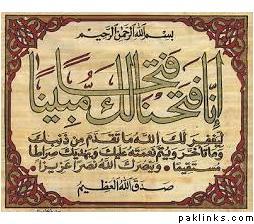 بسم الله الرحمن الرحيم
إنا فتحنا لك فتحا مبينا
ليغفر لك الله ما تقدم من ذنبك
وما تأخر ويتم نعمته عليك ويهديك صراطا
مستقيما وينصرك الله نصرا عزيزا
صدق الله العظيم
paklinks.com